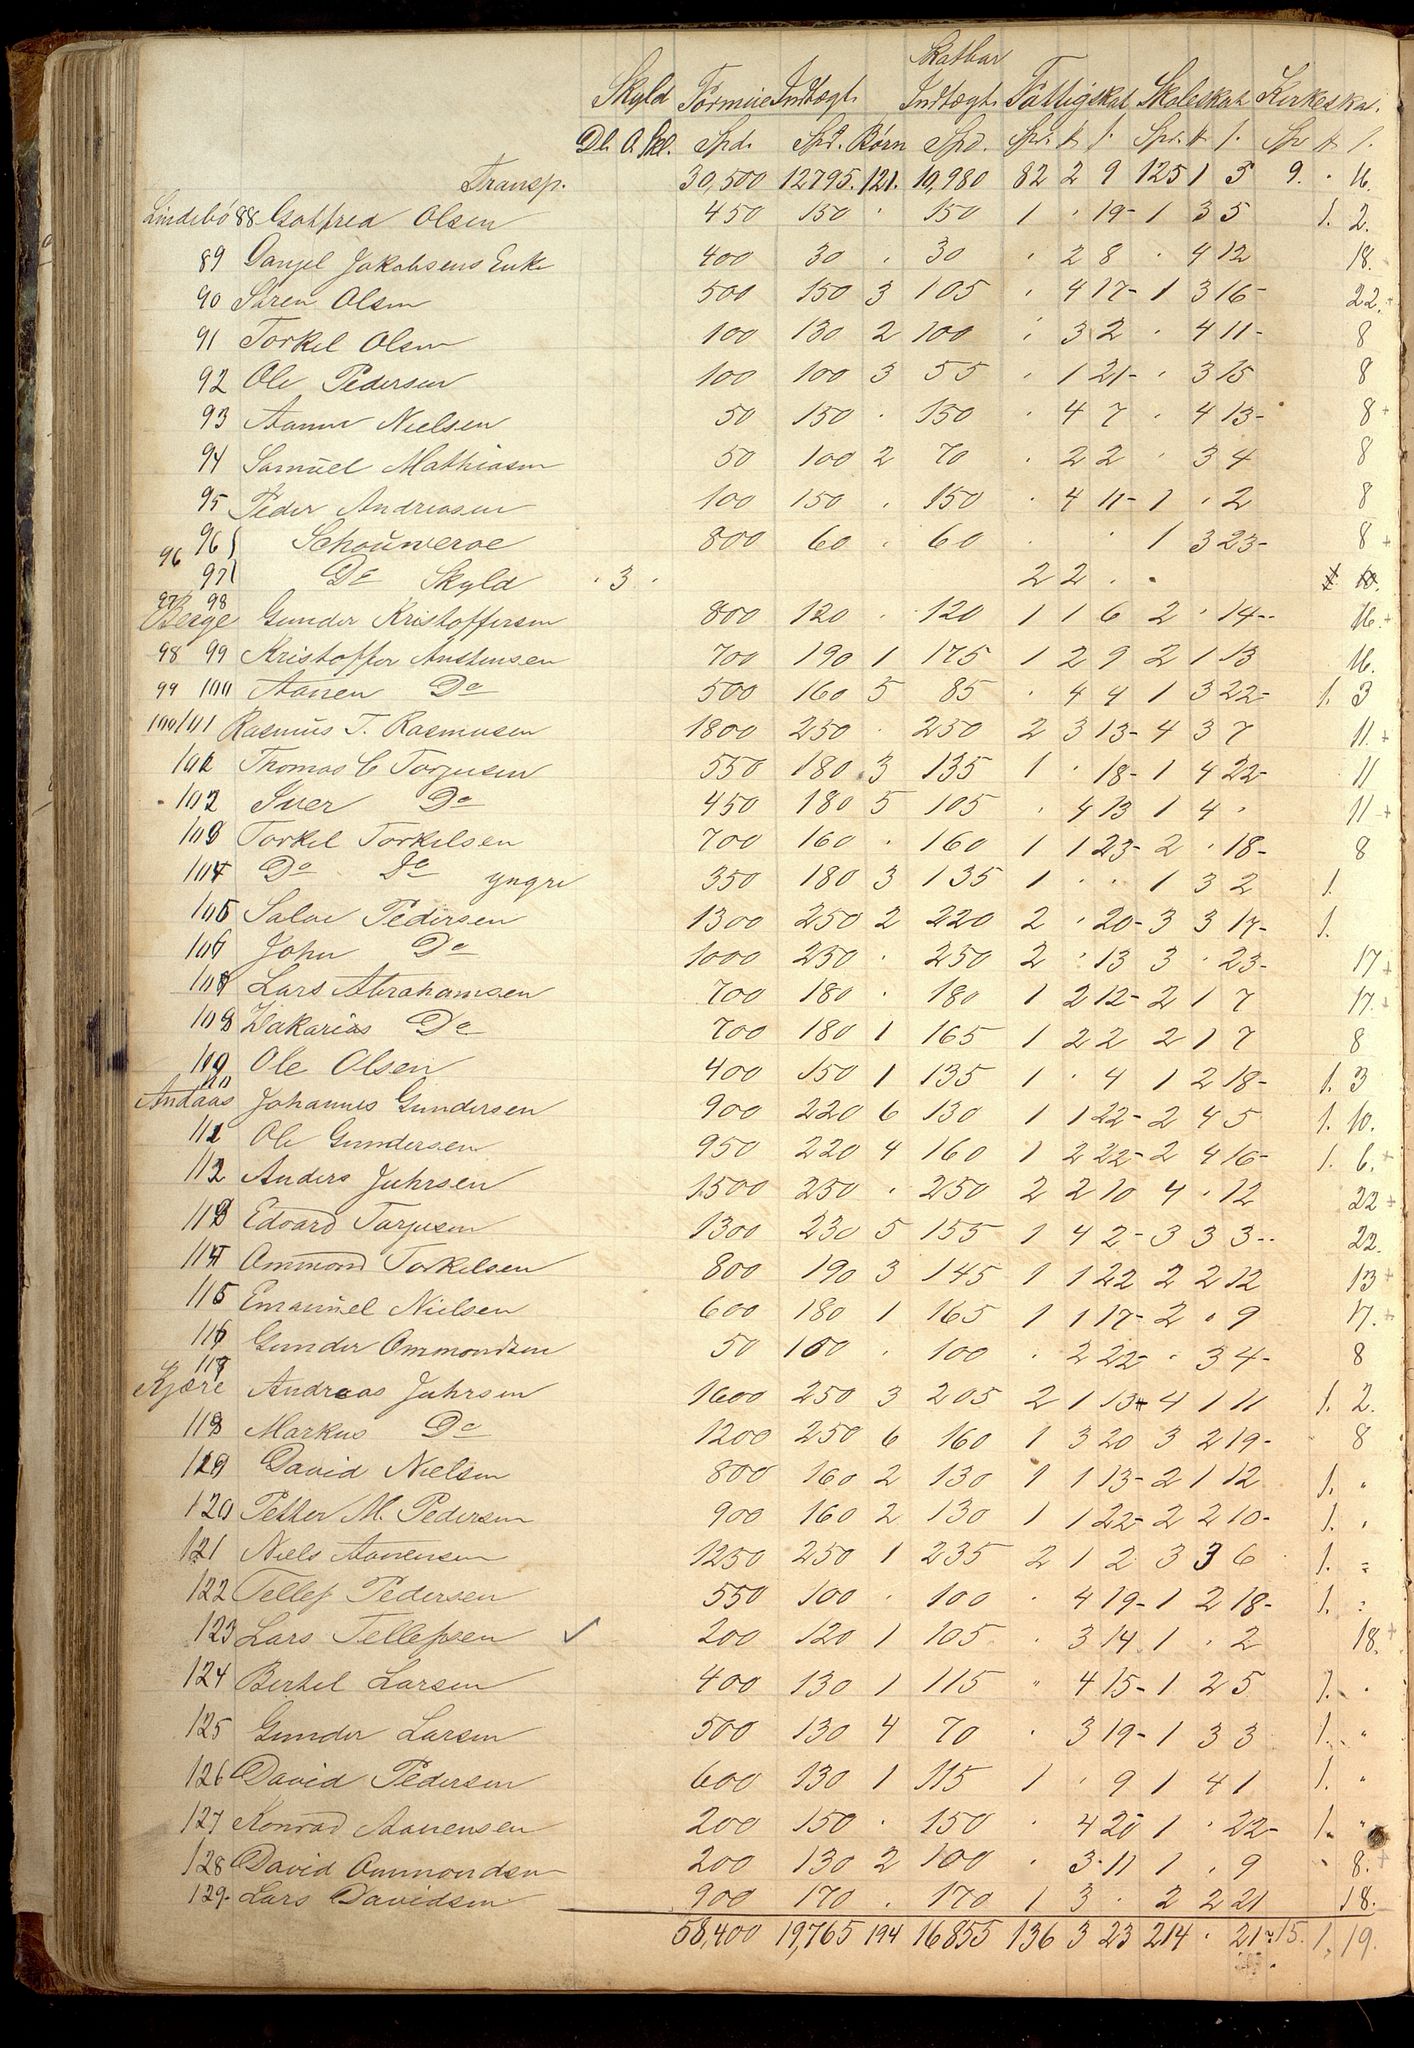 Skatbar
Skyld Formue Indtægt. Indtægt. Fattigskat Skoleskat Kirkeskat.
Dl. O. Skl. Spd. Spd. Børn Spd. Spd. # ſ. Spd. # ſ. Spd # ſ.
Transp. 30,500 12795. 121. 10,980 82 2 9 125 1 3 9. · 16.
Lindebö 88 Gotfred Olsen 450 150 · 150 1 · 19- 1 3 5 1. 2.
89 Danjel Jakobsens Enke 400 30 · 30 · 2 8 · 4 12 18.
90 Sören Olsen 500 150 3 105 · 4 17- 1 3 16- 22.
91 Torkel Olsen 100 130 2 100 · 3 2 · 4 11- 8
92 Ole Pedersen 100 100 3 55 · 1 21- · 3 15 8
93 Aanen Nielsen 50 150 · 150 · 4 7 · 4 13- 8 +
94 Samuel Mathiasen 50 100 2 70 · 2 2 · 3 4 8
95 Peder Andreasen 100 150 · 150 · 4 11- 1 · 2 8
96 96 Schouweroe 800 60 · 60 · · 1 3 23- 8 +
97 Do Skyld · 3 · 2 2 · · 10.
97 98
Berge Gunder Kristoffersen 800 120 · 120 1 1 6 2 · 14- 16. +
98 99 Kristoffer Anstensen 700 190 1 175 1 2 9 2 1 13 16.
99 100 Aanen Do 500 160 5 85 · 4 4 1 3 22- 1. 3
100 101 Rasmus T. Rasmusen 1800 250 · 250 2 3 13- 4 3 7 11. +
102 Thomas C Torjusen 550 180 3 135 1 · 18- 1 4 22- 11
102 Iver Do 450 180 5 105 · 4 13 1 4 · 11 +
103 Torkel Torkelsen 700 160 · 160 1 1 23- 2 · 18- 8
104 Do Do yngre 350 180 3 135 1 · · 1 3 2 1.
105 Salve Pedersen 1300 250 2 220 2 · 20- 3 3 17- 1.
106 John Do 1000 250 · 250 2 · 13 3 · 23- 17 +
107 Lars Abrahamsen 700 180 · 180 1 2 12- 2 1 7 17. +
108 Zakarias Do 700 180 1 165 1 2 2 2 1 7 8
109 Ole Olsen 400 150 1 135 1 · 4 1 2 18- 1. 3
110
Andaas Johannes Gundersen 900 220 6 130 1 1 22- 2 4 5 1. 10.
111 Ole Gundersen 950 220 4 160 1 2 22- 2 4 16- 1. 6. +
112 Anders Juhrsen 1500 250 · 250 2 2 10 4 · 12 22 +
113 Edvard Torjusen 1300 230 5 155 1 4 2- 3 3 3- 22.
114 Ommond Torkelsen 800 190 3 145 1 1 22 2 2 12 13 +
115 Emanuel Nielsen 600 180 1 165 1 1 17- 2 · 9 17. +
116 Gunder Ommondsen 50 100 · 100 · 2 22- · 3 4- 8
117
Kjære Andreas Juhrsen 1600 250 3 205 2 1 13- 4 1 11 1. 2.
118 Markus Do 1200 250 6 160 1 3 20 3 2 19- 8
119 David Nielsen 800 160 2 130 1 1 13- 2 1 12 1. "
120 Petter M. Pedersen 900 160 2 130 1 1 22- 2 2 10- 1. "
121 Niels Aanensen 1250 250 1 235 2 1 2 3 3 6 1. "
122 Tellef Pedersen 550 100 · 100 · 4 19- 1 2 18- 1. "
123 Lars Tellefsen ✓ 200 120 1 105 · 3 14 1 · 2 18. +
124 Bertel Larsen 400 130 1 115 " 4 15- 1 2 5 1. "
125 Gunder Larsen 500 130 4 70 · 3 19- 1 3 3 1. "
126 David Pedersen 600 130 1 115 1 · 9 1 4 1 1. "
127 Konrad Aanensen 200 150 · 150 · 4 20 1 · 22- 1. "
128 David Ommondsen 200 130 2 100 · 3 11 1 · 9 · 8. +
129. Lars Davidsen 900 170 · 170 1 3 · 2 2 21 18.
58,400 19,765 194 16855 136 3 23 214 · 21- 15. 1. 19.